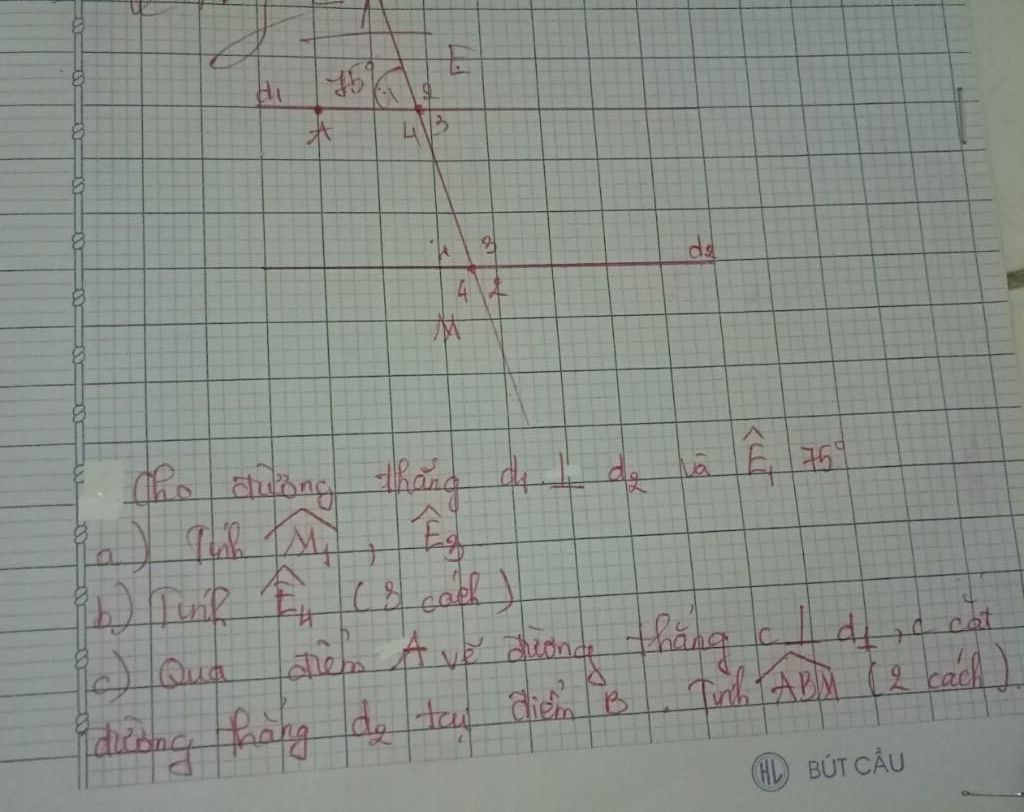 E
d₁ 75° 1 2
A 4 3
1 3 d₂
4 2
M
Cho đường thẳng d₁ ⊥ d₂ và Ê₁ 75°
a) Tính M̂₁ , Ê₃
b) Tính Ê₄ (3 cách)
c) Qua điểm A vẽ đường thẳng c ⊥ d₁, c cắt
đường thẳng d₂ tại điểm B. Tính ABM (2 cách)
HL BÚT CẦU